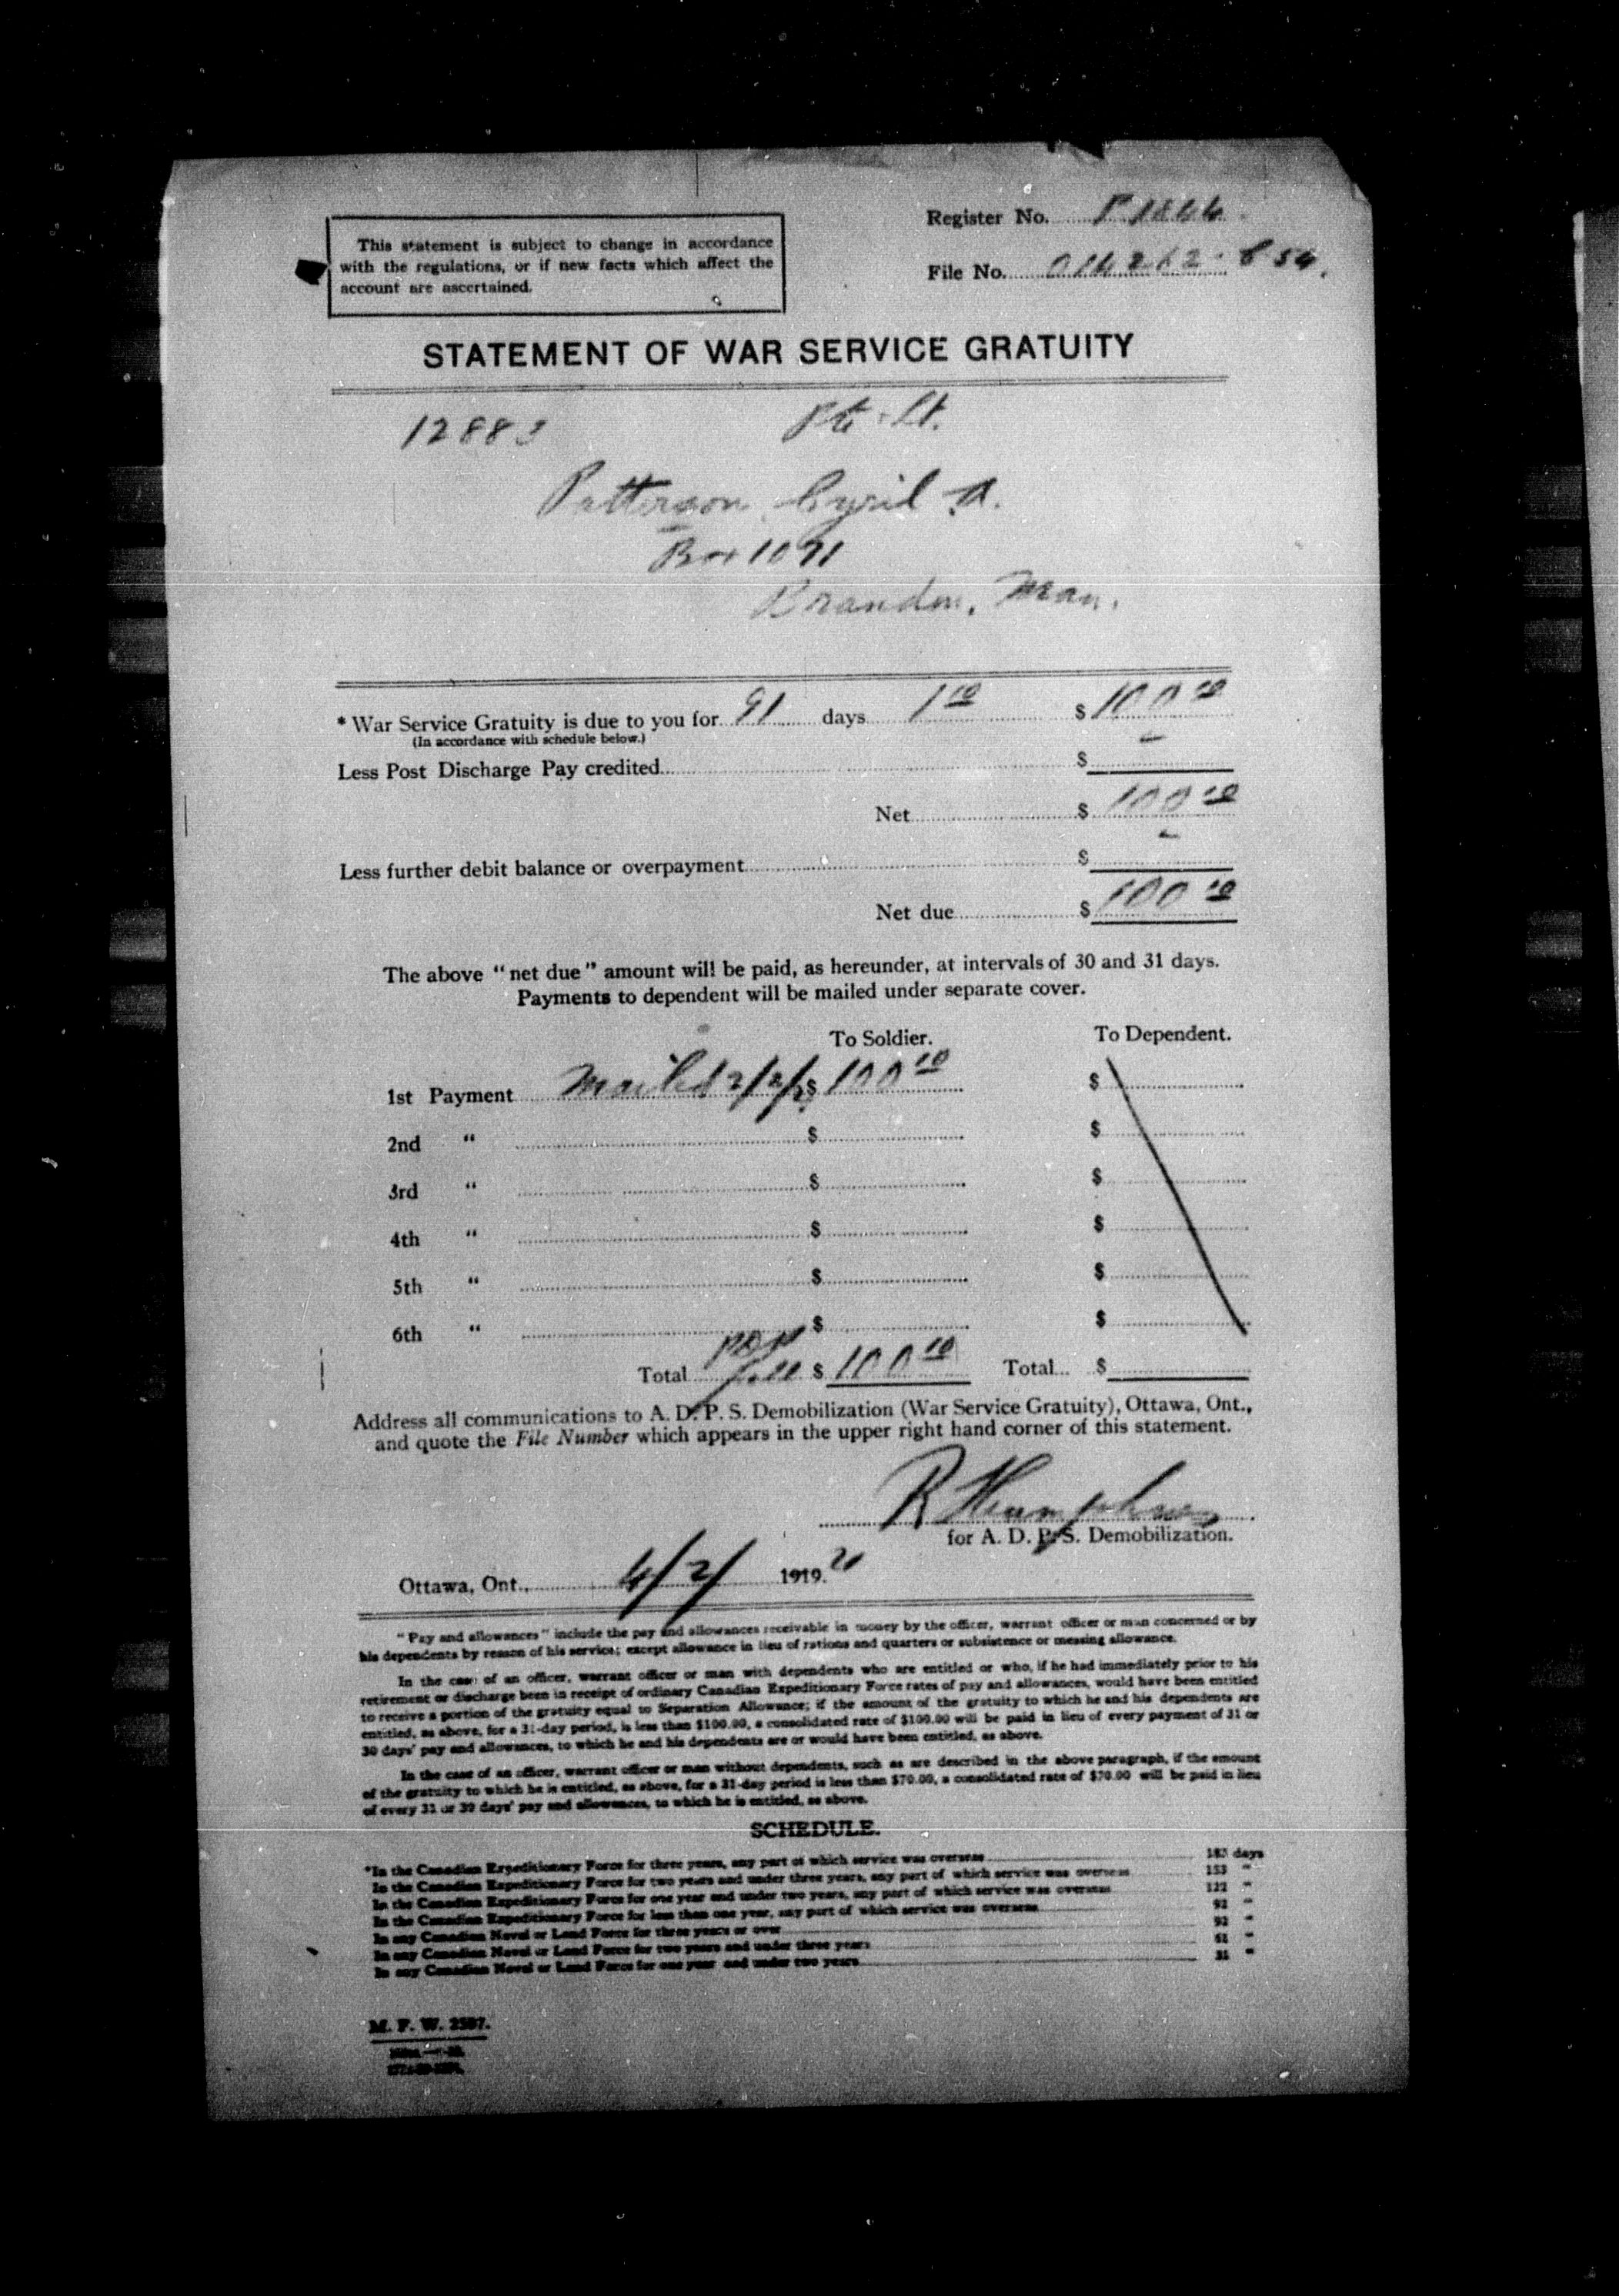 This statement is subject to change in accordance
with the regulations, or if new facts which affect the
account are ascertained.
Register No.
File No.
STATEMENT OF WAR SERVICE GRATUITY
12883 Pte Lt.
Patterson Cyril A.
Box 1091
Brandon, Man.
* War Service Gratuity is due to you for 91 days 1 10 $ 100 10
(In accordance with schedule below.)
Less Post Discharge Pay credited $ —
Net $ 100 10
Less further debit balance or overpayment $ —
Net due $ 100 10
The above "net due" amount will be paid, as hereunder, at intervals of 30 and 31 days.
Payments to dependent will be mailed under separate cover.
To Soldier. To Dependent.
1st Payment Mailed $ 100 10 $
2nd " $ $
3rd " $ $
4th " $ $
5th " $ $
6th " $ $
Total $ 100 10 Total $
Address all communications to A. D. P. S. Demobilization (War Service Gratuity), Ottawa, Ont.,
and quote the File Number which appears in the upper right hand corner of this statement.
R Humphrey
for A. D. P. S. Demobilization.
Ottawa, Ont., 4/2/ 1919. 20
"Pay and allowances" include the pay and allowances receivable in money by the officer, warrant officer or man concerned or by
his dependents by reason of his service; except allowance in lieu of rations and quarters or subsistence or messing allowance.
In the case of an officer, warrant officer or man with dependents who are entitled or who, if he had immediately prior to his
retirement or discharge been in receipt of ordinary Canadian Expeditionary Force rates of pay and allowances, would have been entitled
to receive a portion of the gratuity equal to Separation Allowance; if the amount of the gratuity to which he and his dependents are
entitled, as above, for a 31-day period, is less than $100.00, a consolidated rate of $100.00 will be paid in lieu of every payment of 31 or
30 days' pay and allowances, to which he and his dependents are or would have been entitled, as above.
In the case of an officer, warrant officer or man without dependents, such as are described in the above paragraph, if the amount
of the gratuity to which he is entitled, as above, for a 31-day period is less than $70.00, a consolidated rate of $70.00 will be paid in lieu
of every 31 or 30 days' pay and allowances, to which he is entitled, as above.
SCHEDULE.
*In the Canadian Expeditionary Force for three years, any part of which service was overseas 183 days
In the Canadian Expeditionary Force for two years and under three years, any part of which service was overseas 153 "
In the Canadian Expeditionary Force for one year and under two years, any part of which service was overseas 122 "
In the Canadian Expeditionary Force for less than one year, any part of which service was overseas 92 "
In any Canadian Naval or Land Force for three years or over 92 "
In any Canadian Naval or Land Force for two years and under three years 61 "
In any Canadian Naval or Land Force for one year and under two years 31 "
M. F. W. 2507.